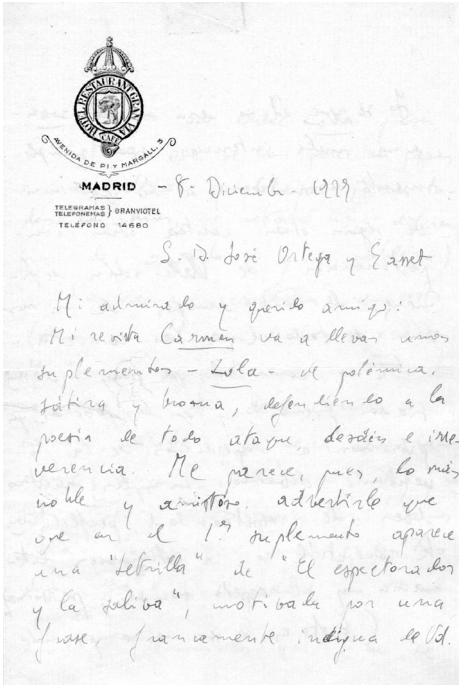 HOTEL RESTAURANT GRAN VIA
CAFE
AVENIDA DE PI Y MARGALL 3
MADRID - 8 - Diciembre - 1927
TELEGRAMAS
TELEFONEMAS } GRANVIOTEL
TELÉFONO 14680
S. D. José Ortega y Gasset
Mi admirado y querido amigo:
Mi revista Carmen va a llevar unos
suplementos - Lola - de polémica,
sátira y broma, defendiendo a la
poesía de todo ataque, desdén e irre-
verencia. Me parece, pues, lo más
noble y amistoso advertirle que
que en el 1er suplemento aparece
una "letrilla" de "El espectorador
y la saliva", motivada por una
frase francamente indigna de Vd.